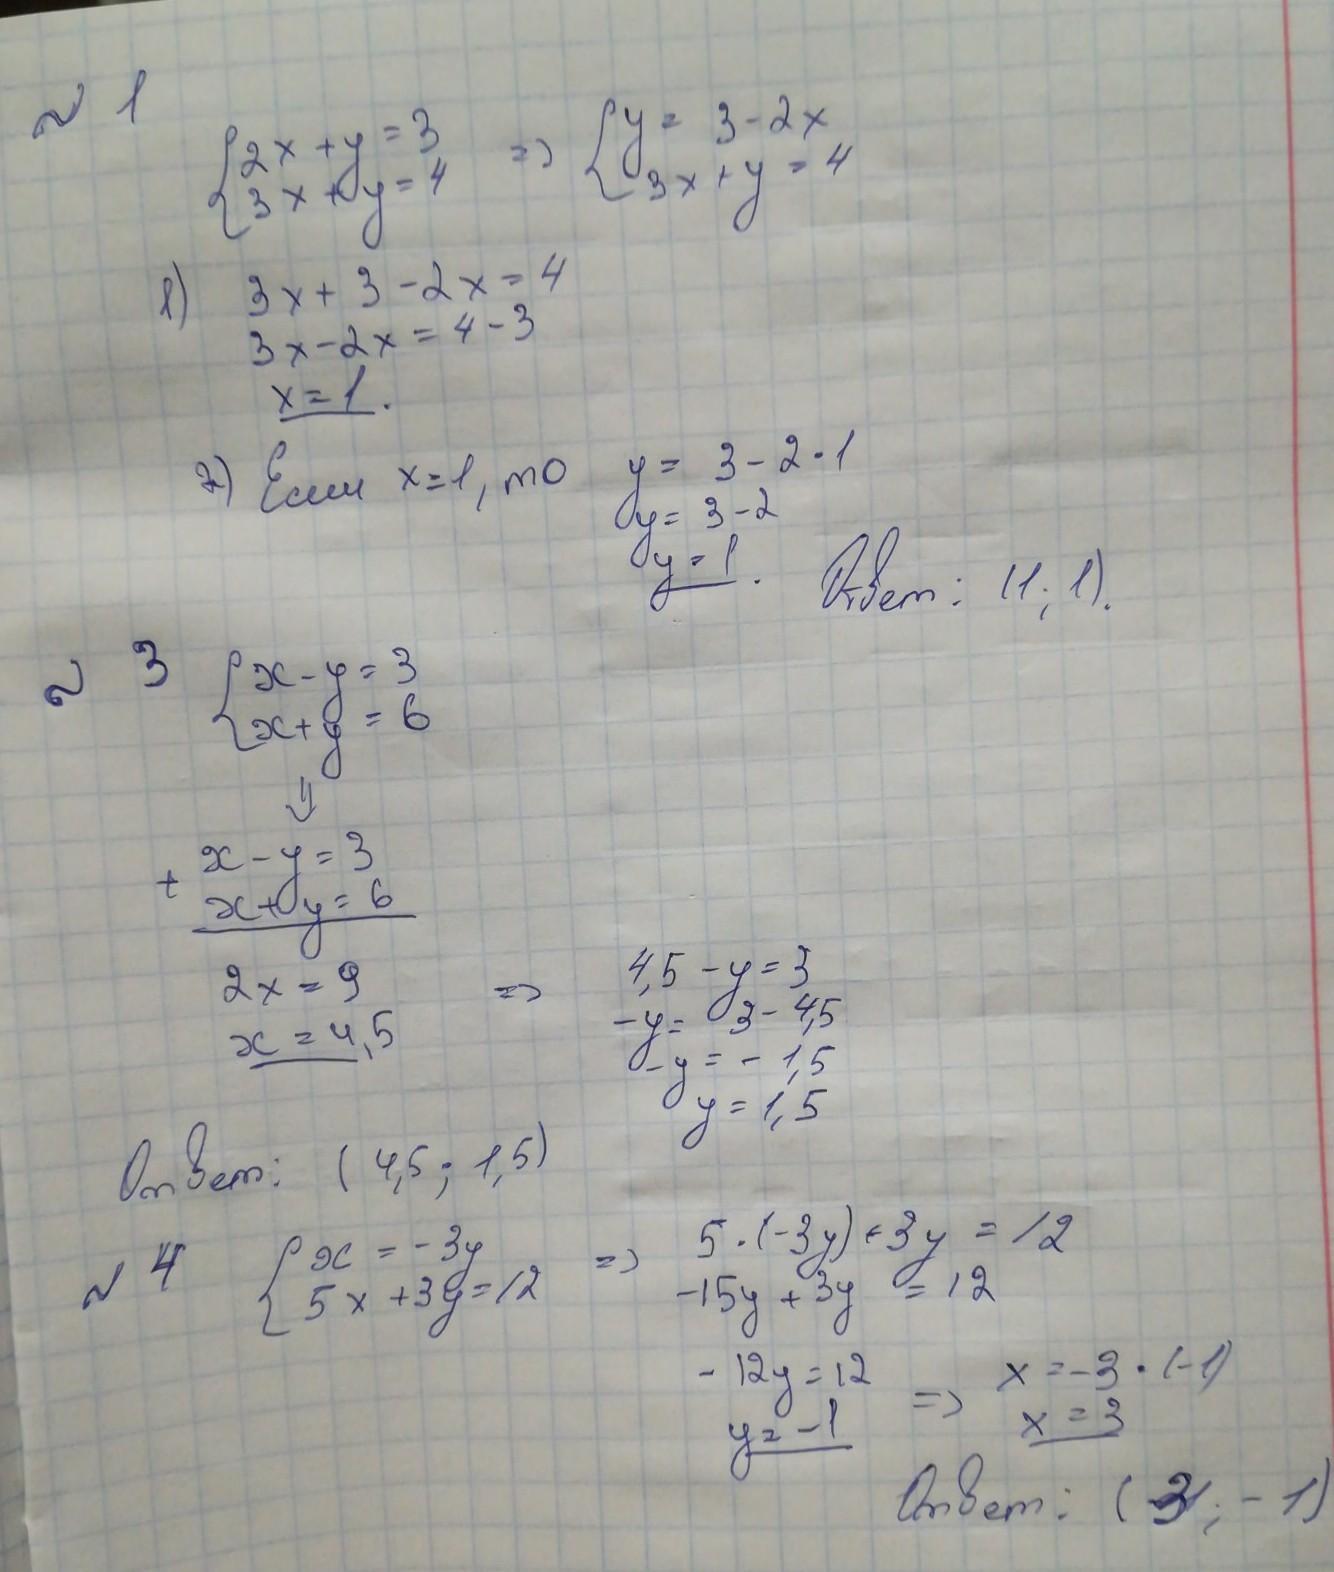 № 1
{2x + y = 3 => {y = 3 - 2x
3x + y = 4 3x + y = 4
1) 3x + 3 - 2x = 4
3x - 2x = 4 - 3
x = 1.
2) Если x = 1, то y = 3 - 2 · 1
y = 3 - 2
y = 1. Ответ: (1; 1).
№ 3 {x - y = 3
x + y = 6
⇓
+ x - y = 3
x + y = 6
2x = 9 => 4,5 - y = 3
x = 4,5 -y = 3 - 4,5
-y = - 1,5
y = 1,5
Ответ: (4,5; 1,5)
№ 4 {x = -3y => 5 · (-3y) + 3y = 12
5x + 3y = 12 -15y + 3y = 12
-12y = 12 => x = -3 · (-1)
y = -1 x = 3
Ответ: (3; -1)